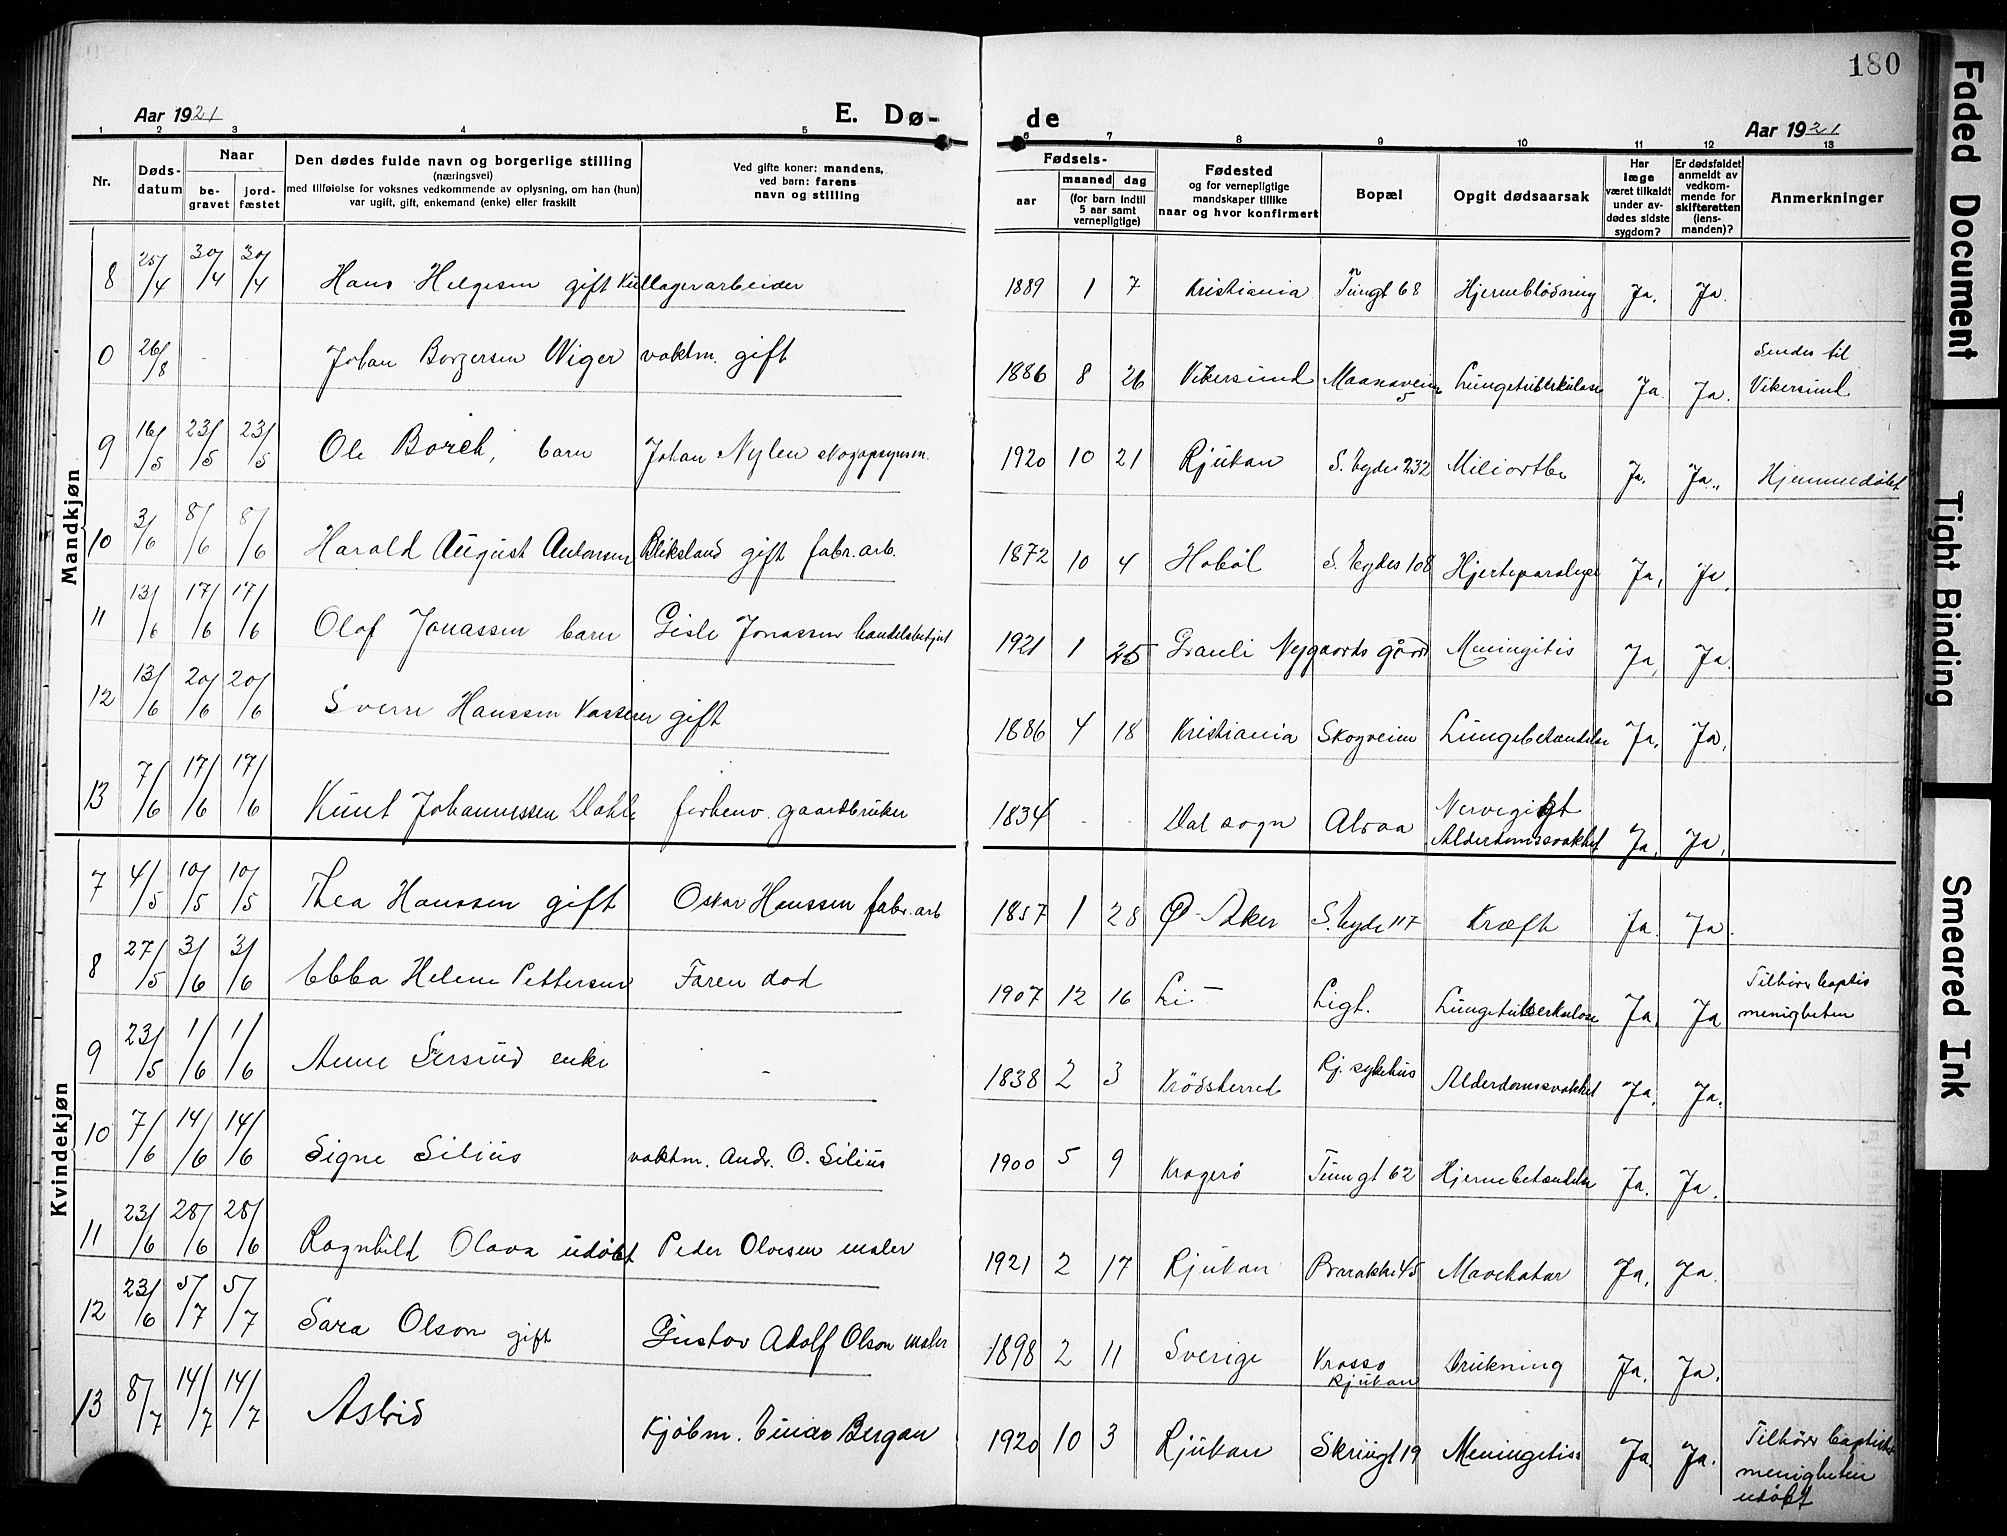 180
Aar 1921
E. Dø-
de
Aar 1921
1 2 3 4 5 6 7 8 9 10 11 12 13
Nr.
Døds-
datum
Naar
be-
gravet
jord-
fæstet
Den dødes fulde navn og borgerlige stilling
(næringsvei)
med tilføielse for voksnes vedkommende av oplysning, om han (hun)
var ugift, gift, enkemand (enke) eller fraskilt
Ved gifte koner: mandens,
ved barn: farens
navn og stilling
Fødsels-
aar
maaned dag
(for barn indtil
5 aar samt
vernepligtige)
Fødested
og for vernepligtige
mandskaper tillike
naar og hvor konfirmert
Bopæl
Opgit dødsaarsak
Har
læge
været tilkaldt
under av-
dødes sidste
sygdom?
Er dødsfaldet
anmeldt av
vedkom-
mende for
skifteretten
(lens-
manden)?
Anmerkninger
Mandkjøn
8 25/4 30/4 30/4 Hans Helgesen gift Kullagerarbeider 1889 1 7 Kristiania Tungt 68 Hjerneblødning Ja. Ja.
0 26/8 - - Johan Borgersen Wiger vaktm. gift 1886 8 26 Vikersund Maanaveien 5 Lungetuberkulose Ja. Ja. Sendes til
Vikersund
9 16/5 23/5 23/5 Ole Borch, barn Johan Nylen skogopsynsm. 1920 10 21 Rjukan S. byde 232 Ja. Ja. Hjemmedøbt
10 3/6 8/6 8/6 Harald August Antonsen Bliksland gift fabr. arb. 1872 10 4 Hobøl S. bydes 108 Hjerteparalyse Ja. Ja.
11 13/6 17/6 17/6 Olaf Jonassen barn Gisle Jonassen handelsbetjent 1921 1 25 Grauli Nygaards gård Meningitis Ja. Ja.
12 13/6 20/6 20/6 Sverre Hanssen Kasserer gift 1886 4 18 Kristiania Skogveien Lungebetændelse Ja. Ja.
13 7/6 17/6 17/6 Knut Johannessen Dahle forhenv. gaardbruker 1834 - - Dal sogn Nervegigt
Alderdomssvakhet Ja. Ja.
Kvindekjøn
7 4/5 10/5 10/5 Thea Hanssen gift Oskar Hanssen fabr. arb 1857 1 28 Ø. Aker S. byde 117 Kræft Ja. Ja.
8 27/5 3/6 3/6 Ebba Helene Pettersen Faren død 1907 12 16 Li - Ligt. Lungetuberkulose Ja. Ja Tilhører baptis
menigheten
9 23/5 1/6 1/6 Anne Sersrud enke - 1838 2 3 Krødsherred Rj. sykehus Alderdomssvakhet Ja. Ja.
10 7/6 14/6 14/6 Signe Silius vaktm. Andr. O. Silius 1900 5 9 Kragerø Tungt 62 Hjernebetændelse Ja. Ja.
11 23/6 28/6 28/6 Ragnhild Olava udøbt Peder Olvesen maler 1921 2 17 Rjukan Barakke 45 Mavekatar Ja. Ja.
12 23/6 5/7 5/7 Sara Olson gift Gustav Adolf Olson maler 1898 2 11 Sverige Krosso
Rjukan Drukning Ja. Ja.
13 8/7 14/7 14/7 Astrid Kjøbm. Einar Bergan 1920 10 3 Rjukan Skriugt 19 Meningitiss Ja. Ja. Tilhører baptist
menigheten
udøbt
Faded Document
Tight Binding
Smeared Ink